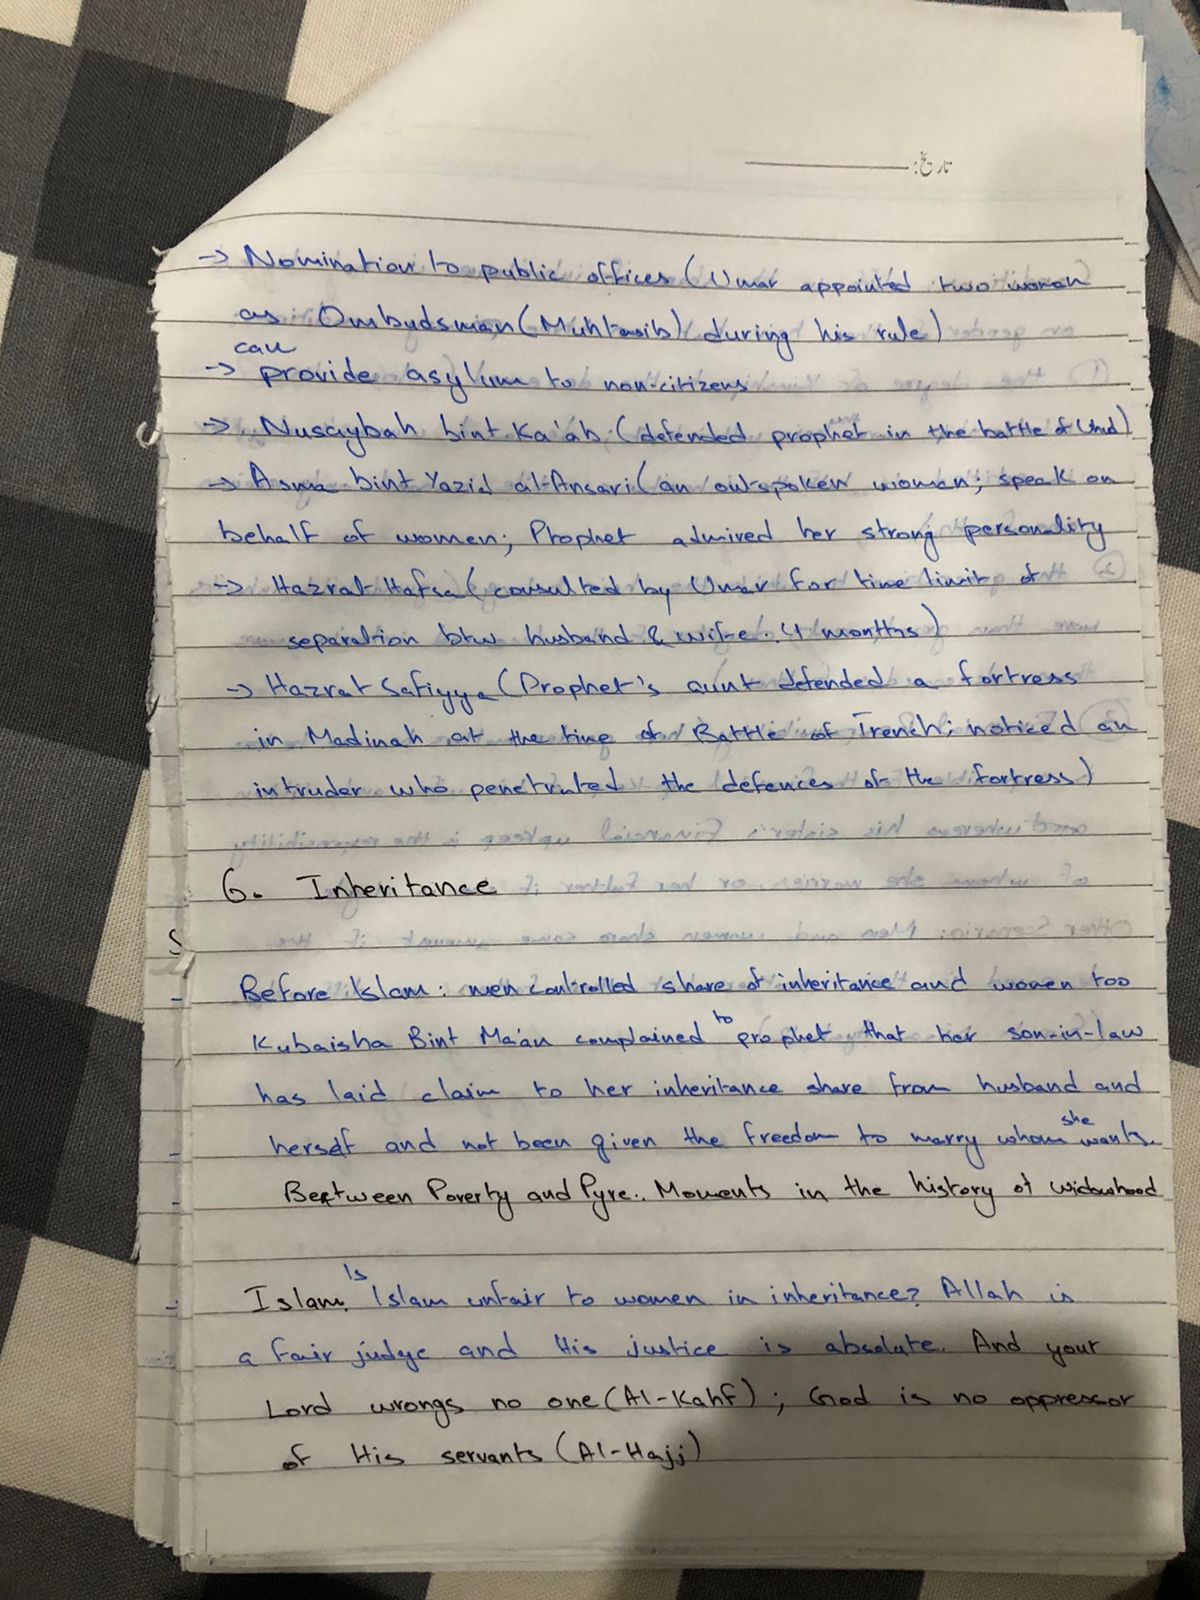 تاریخ:
→ Nomination to public offices (Umar appointed two women
as Ombudsman (Muhtasib) during his rule)
can
→ provide asylum to non-citizens
→ Nusaybah bint Ka'ab (defended prophet in the battle of Uhud)
→ Asma bint Yazid al-Ansari (an outspoken women; speak on
behalf of women; Prophet admired her strong personality
→ Hazrat Hafsa (consulted by Umar for time limit of
separation btw husband & wife. 4 months)
→ Hazrat Safiyya (Prophet's aunt defended a fortress
in Madinah at the time of Battle of Trench; noticed an
intruder who penetrated the defences of the fortress)
6. Inheritance
Before Islam: men controlled share of inheritance and women too
Kubaisha Bint Ma'an complained to prophet that her son-in-law
has laid claim to her inheritance share from husband and
herself and not been given the freedom to marry whom she wants.
Beetween Poverty and Pyre. Moments in the history of widowhood
Islam. Is Islam unfair to women in inheritance? Allah is
a fair judge and His justice is absolute. And your
Lord wrongs no one (Al-Kahf); God is no oppressor
of His servants (Al-Hajj)